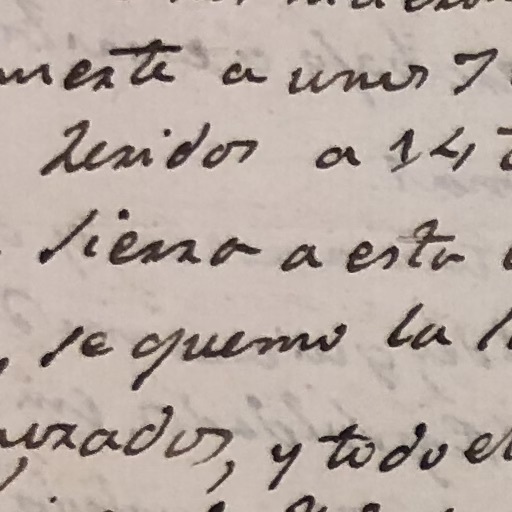 mente a unos 7
heridos a 14, 
sierra a esta
, se quemo la
uzados, y todo el